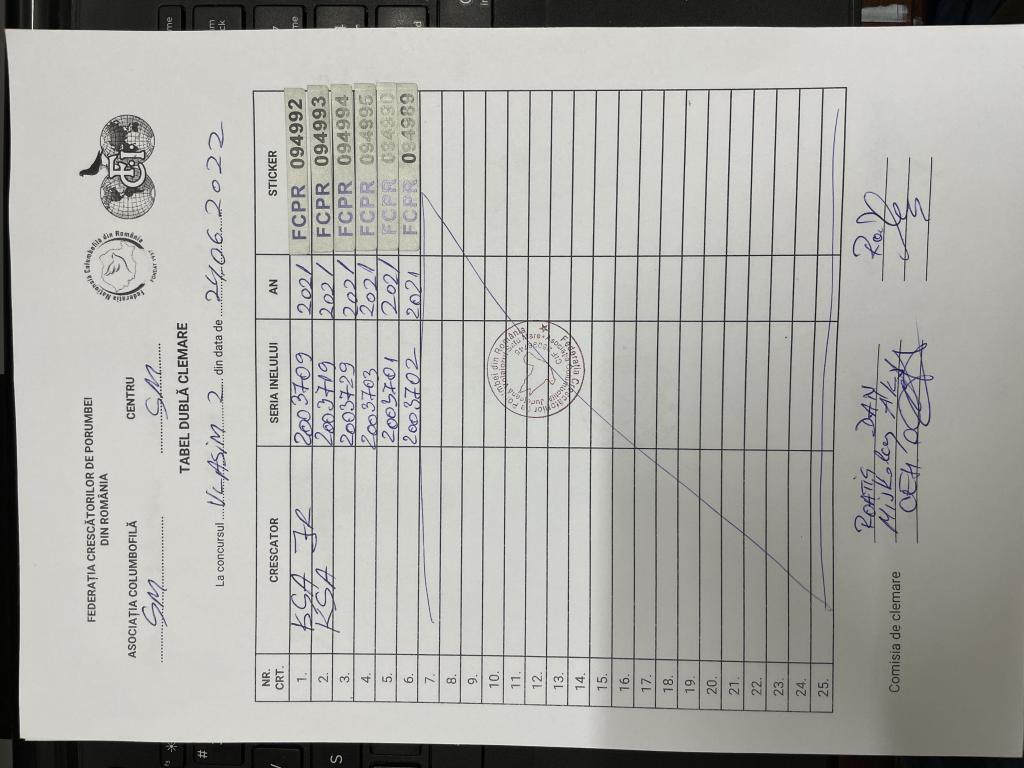 FEDERAȚIA CRESCĂTORILOR DE PORUMBEI
DIN ROMÂNIA
ASOCIAȚIA COLUMBOFILĂ CENTRU
SM SM
Federația Națională Columbofilă din România
TABEL DUBLĂ CLEMARE
La concursul V.ASIM 2 din data de 24.06.2022
NR. CRT. CRESCATOR SERIA INELULUI AN STICKER
1. KSA JR 2003709 2021 FCPR 094992
2. KSA 2003719 2021 FCPR 094993
3. 2003729 2021 FCPR 094994
4. 2003703 2021 FCPR 094995
5. 2003701 2021 FCPR
6. 2003702 2021 FCPR 094989
7.
8.
9.
10.
11.
12.
13.
14.
15.
16.
17.
18.
19.
20.
21.
22.
23.
24.
25.
Federația Crescătorilor de Porumbei din România
Comisia de clemare
DAN